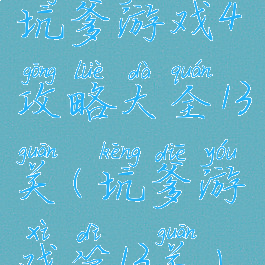 坑爹游戏4
gōng lüè dà quán
攻略大全13
guān kēng diē yóu
关(坑爹游
xì dì guān
戏第13关)